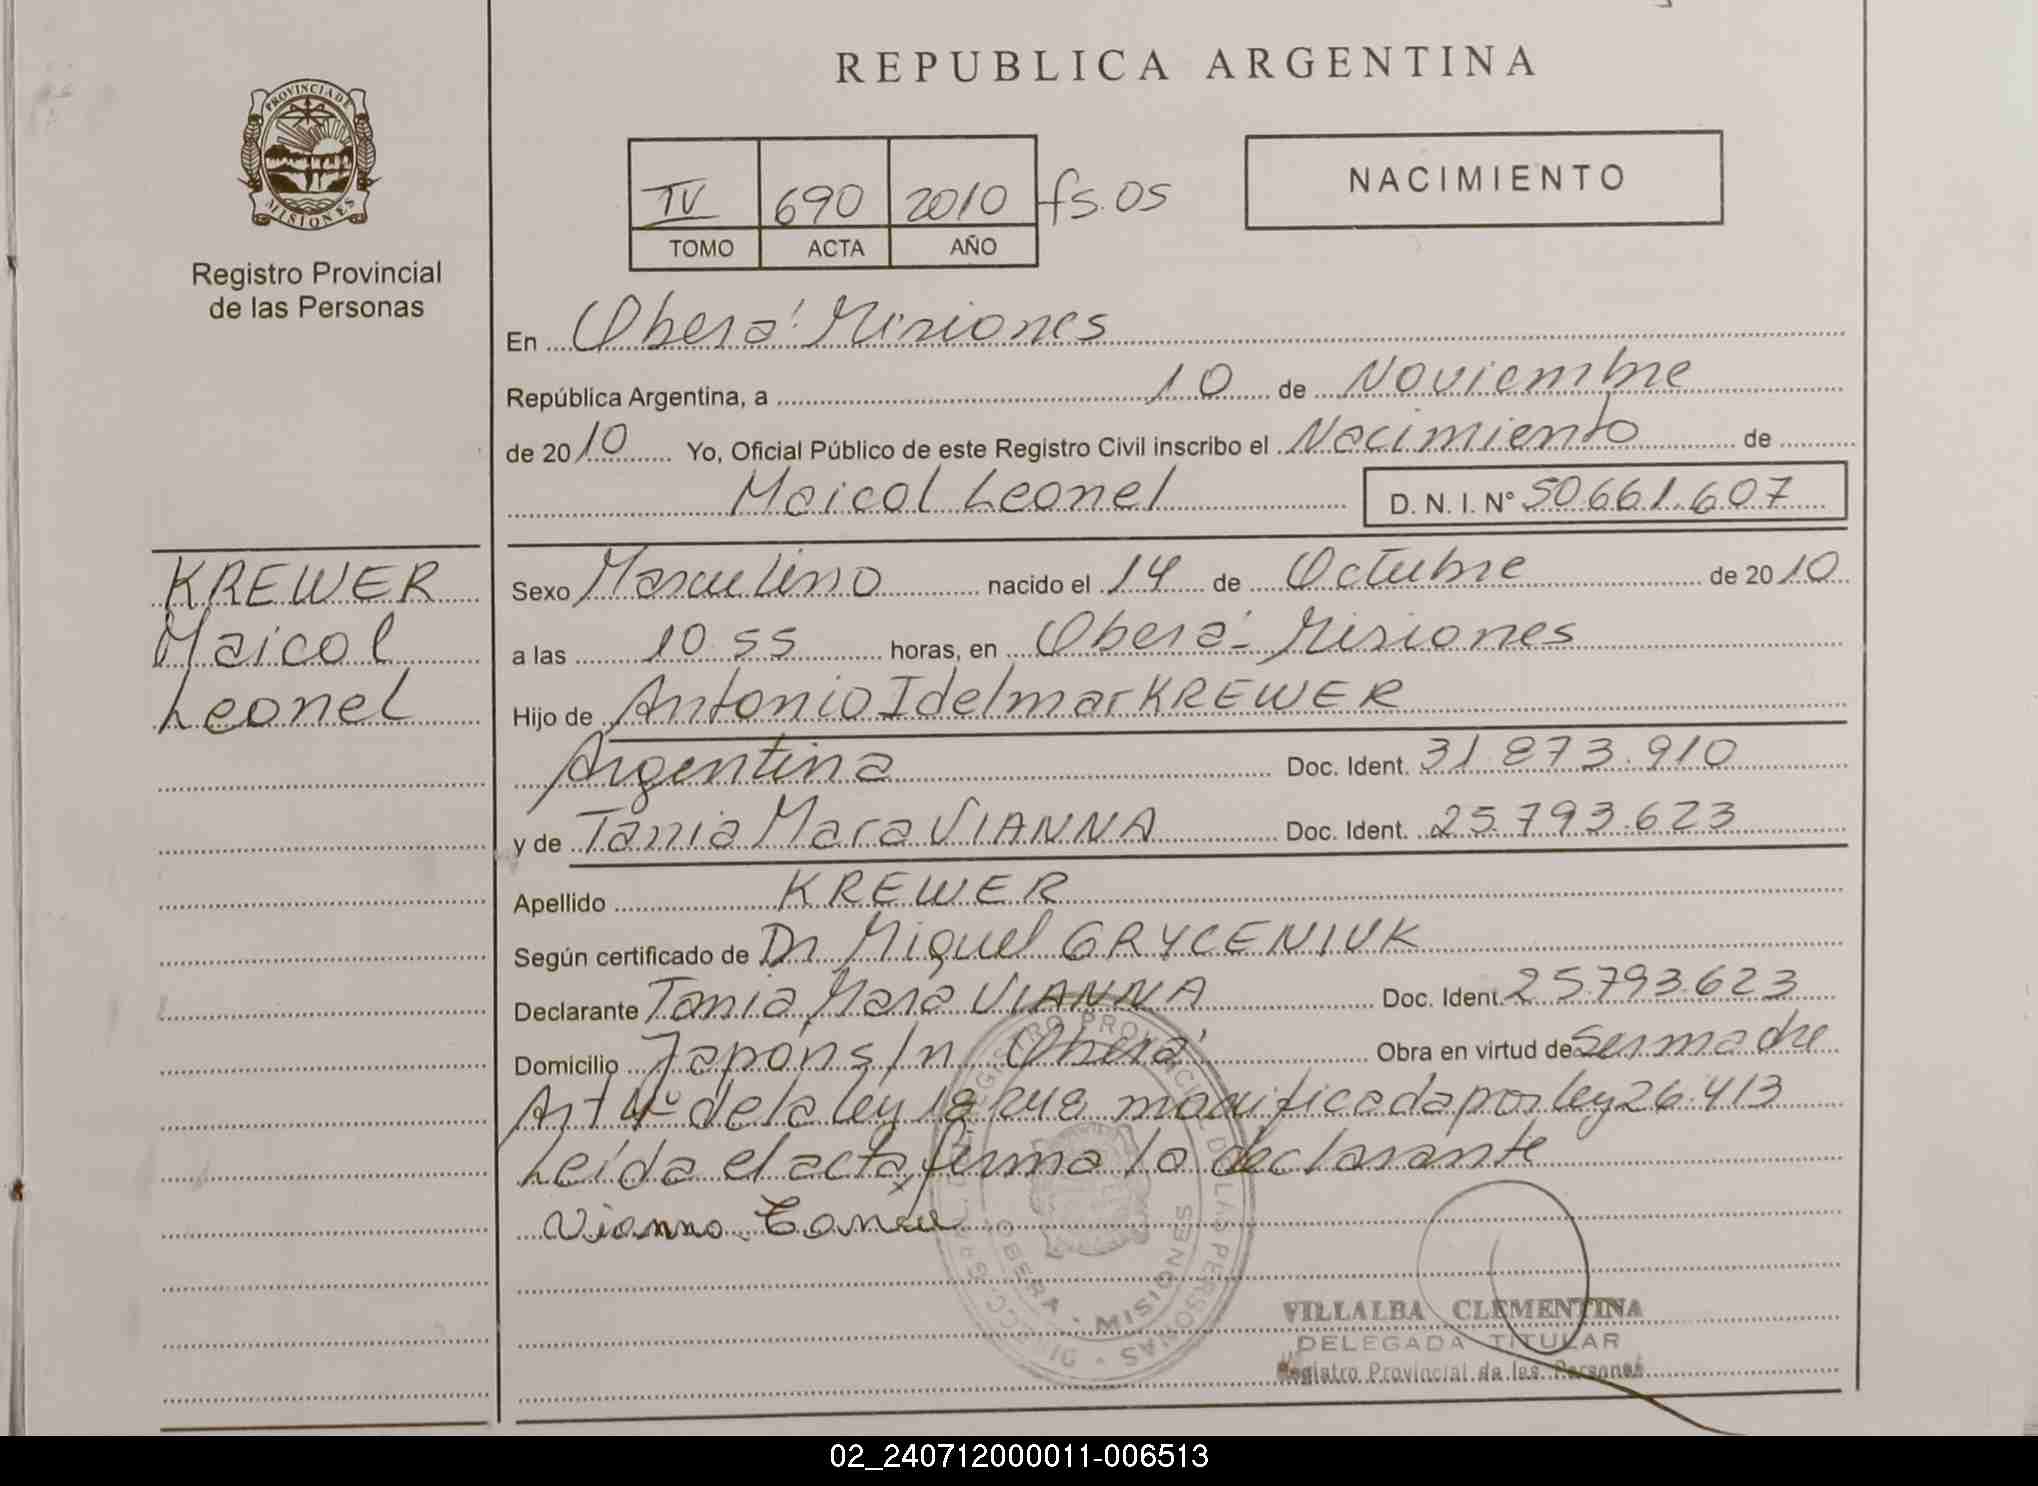 REPUBLICA ARGENTINA
PROVINCIA DE
MISIONES
Registro Provincial
de las Personas
IV 690 2010 fs. 05
TOMO ACTA AÑO
NACIMIENTO
En Oberá Misiones
República Argentina, a 10 de Noviembre
de 2010 Yo, Oficial Público de este Registro Civil inscribo el Nacimiento de
Maicol Leonel D. N. I. Nº 50.661.607
KREWER
Maicol
Leonel
Sexo Masculino nacido el 14 de Octubre de 2010
a las 10.55 horas, en Oberá - Misiones
Hijo de Antonio Idelmar KREWER
Argentina Doc. Ident. 31.873.910
y de Tania Mara VIANNA Doc. Ident. 25.793.623
Apellido KREWER
Según certificado de Dr Miguel GRYCENIUK
Declarante Tania Mara VIANNA Doc. Ident. 25.793.623
Domicilio Japón s/n Oberá Obra en virtud de ser madre
Art 4º de la ley 18.248 modificada por ley 26.413
Leída el acta, firma la declarante
Vianna Tania
REGISTRO PROVINCIAL DE LAS PERSONAS
OBERA - MISIONES
VILLALBA CLEMENTINA
DELEGADA TITULAR
Registro Provincial de las Personas
02_240712000011-006513